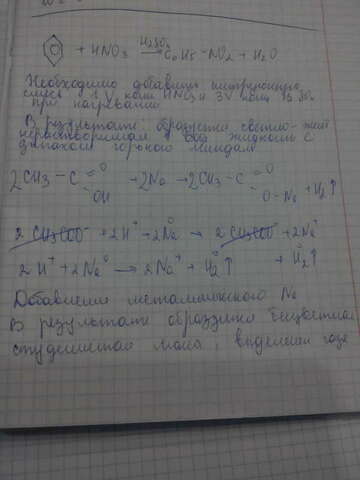 + HNO₃ —H₂SO₄→ C₆H₅-NO₂ + H₂O
Необходимо добавить нитрующую
смесь 1V конц HNO₃ и 3V конц H₂SO₄
при нагревании
В результате: образуется светло-жёлт
нерастворимая в воде жидкость с
запахом горького миндаля
2CH₃-C(=O)OH + 2Na → 2CH₃-C(=O)O-Na + H₂↑
2CH₃COO⁻ + 2H⁺ + 2Na⁰ → 2CH₃COO⁻ + 2Na⁺
+ H₂⁰↑
2H⁺ + 2Na⁰ → 2Na⁺ + H₂⁰↑
Добавления металлического Na
В результате образуется бесцветная
масса, выделения газа